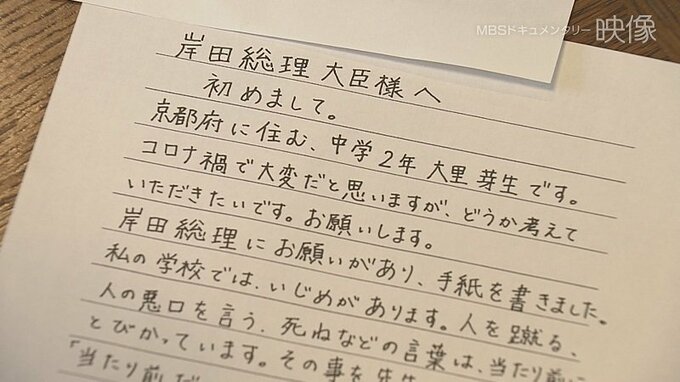 MBSドキュメンタリー 映像
岸田総理大臣様へ
初めまして。
京都府に住む、中学2年 大里 芽生です。
コロナ禍で大変だと思いますが、どうか考えて
いただきたいです。お願いします。
岸田総理にお願いがあり、手紙を書きました。
私の学校では、いじめがあります。人を蹴る、
人の悪口を言う、死ねなどの言葉は、当たり前に
とびかっています。その事を先生
「当たり前だ